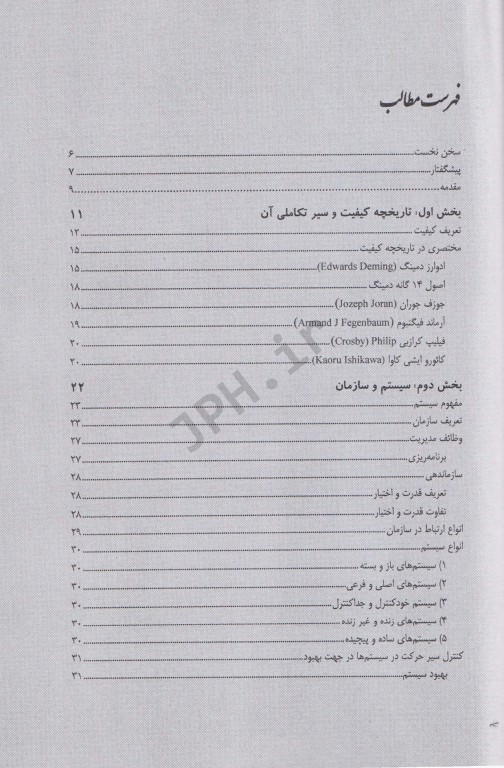 فهرست مطالب
سخن نخست ۶
پیشگفتار ۷
مقدمه ۹
بخش اول: تاریخچه کیفیت و سیر تکاملی آن ۱۱
تعریف کیفیت ۱۲
مختصری در تاریخچه کیفیت ۱۵
ادوارز دمینگ (Edwards Deming) ۱۵
اصول ۱۴ گانه دمینگ ۱۸
جوزف جوران (Jozeph Joran) ۱۸
آرماند فیگنبوم (Armand J Fegenbaum) ۱۹
فیلیپ کرازبی (Crosby) Philip ۲۰
کائورو ایشی کاوا (Kaoru Ishikawa) ۲۰
بخش دوم: سیستم و سازمان ۲۲
مفهوم سیستم ۲۳
تعریف سازمان ۲۳
وظائف مدیریت ۲۷
برنامه‌ریزی ۲۷
سازماندهی ۲۸
تعریف قدرت و اختیار ۲۸
تفاوت قدرت و اختیار ۲۸
انواع ارتباط در سازمان ۲۹
انواع سیستم ۳۰
۱) سیستم‌های باز و بسته ۳۰
۲) سیستم‌های اصلی و فرعی ۳۰
۳) سیستم خودکنترل و جداکنترل ۳۰
۴) سیستم‌های زنده و غیر زنده ۳۰
۵) سیستم‌های ساده و پیچیده ۳۰
کنترل سیر حرکت در سیستم‌ها در جهت بهبود ۳۱
بهبود سیستم ۳۱
JPH.ir